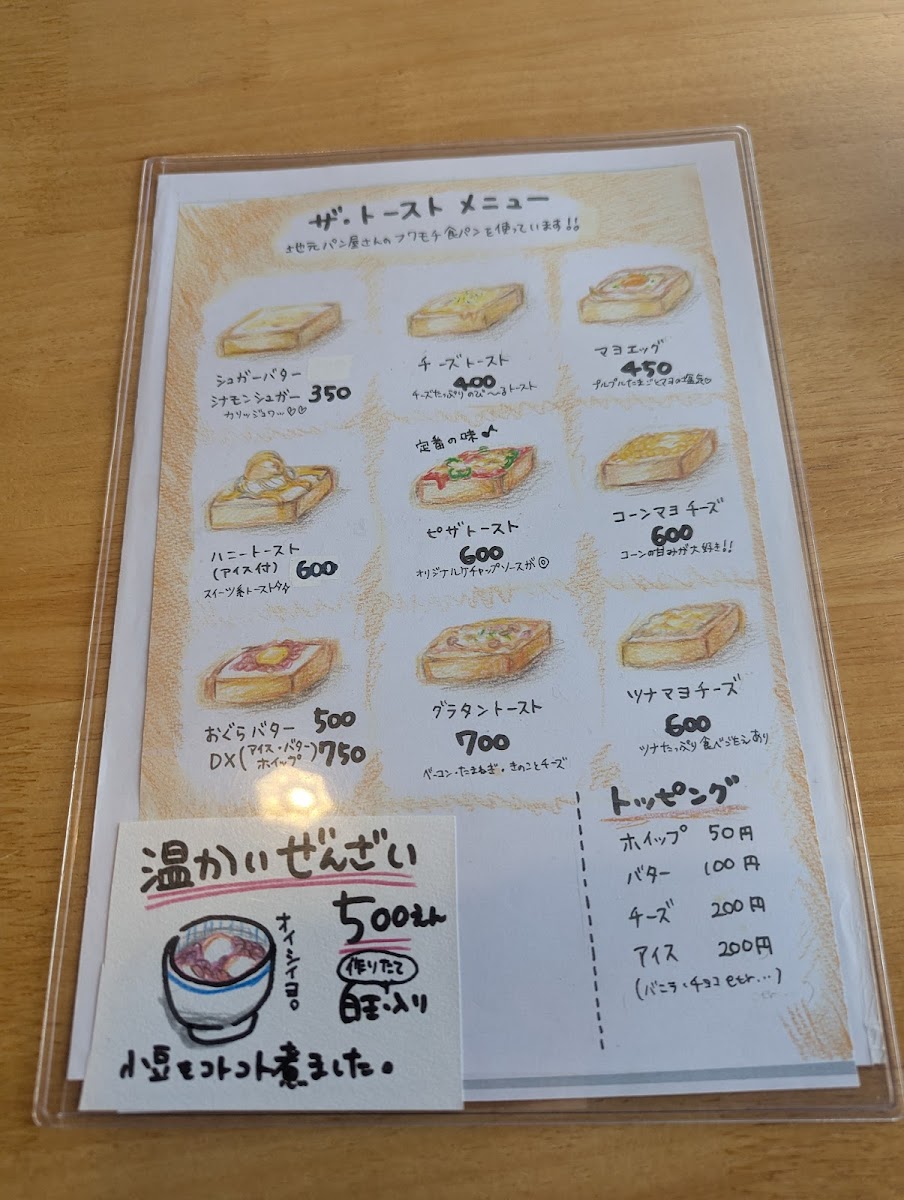 ザ・トースト メニュー
地元パン屋さんのフワモチ食パンを使っています!!
シュガーバター
シナモンシュガー 350
カリッジュワ…♡♡
チーズトースト
400
チーズたっぷり のび〜るトースト
マヨエッグ
450
プルプルたまごとマヨの塩気♡
ハニートースト
(アイス付) 600
スイーツ系トースト
定番の味♪
ピザトースト
600
オリジナルケチャップソースが◎
コーンマヨ チーズ
600
コーンの甘みが大好き!!
おぐらバター 500
DX(アイス・バター
ホイップ) 750
グラタントースト
700
ベーコン・たまねぎ・きのことチーズ
ツナマヨチーズ
600
ツナたっぷり食べごたえあり
トッピング
ホイップ 50円
バター 100円
チーズ 200円
アイス 200円
(バニラ・チョコ etc…)
温かいぜんざい
500えん
オイシイヨ。
作りたて
白玉入り
小豆をコトコト煮ました。